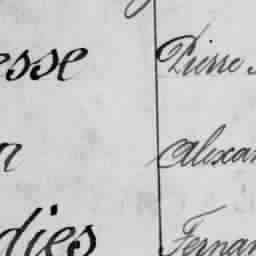 esse Pierre
n Alexan
dies Fernan